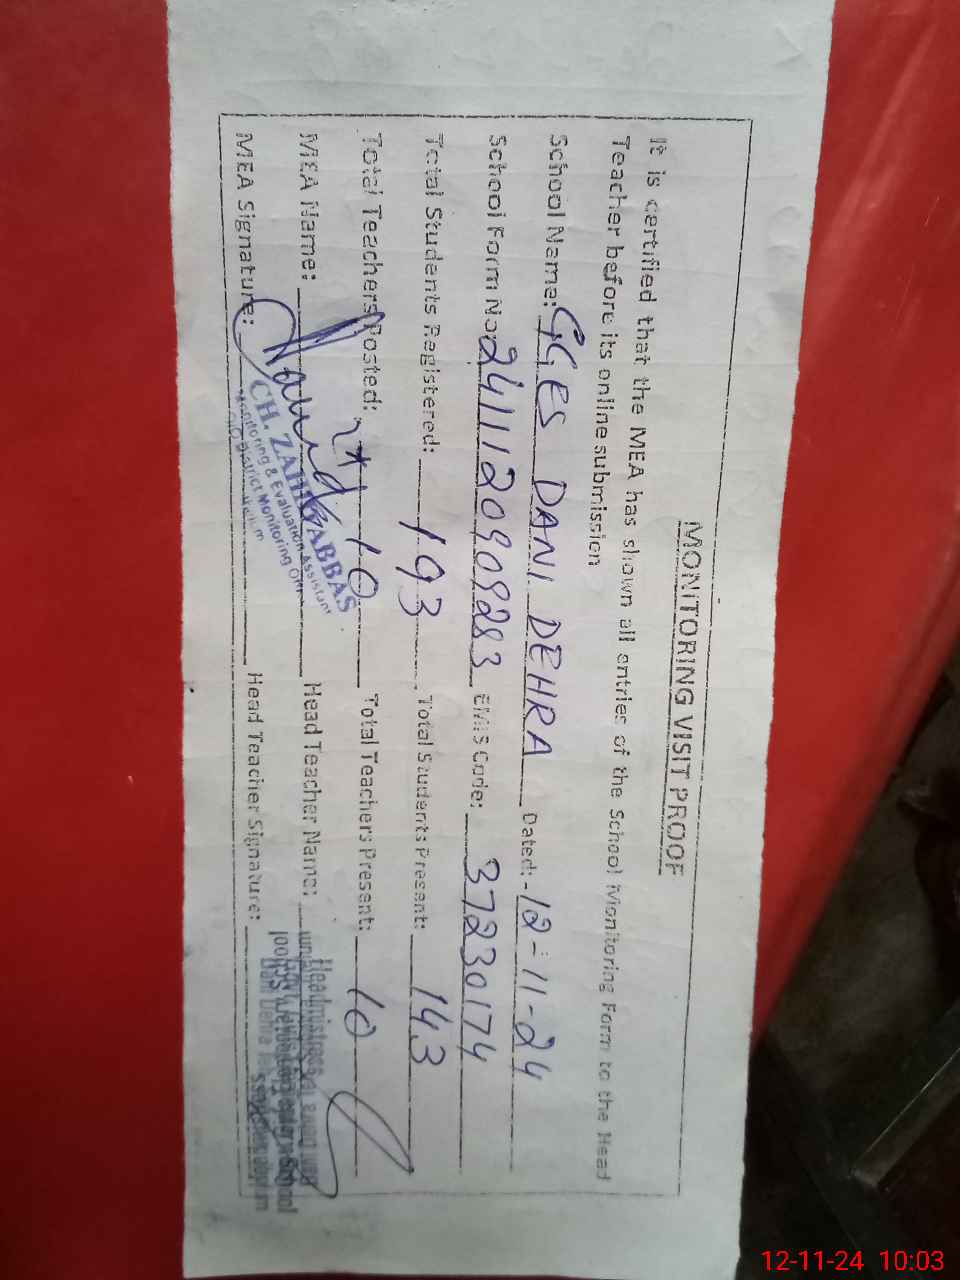 MONITORING VISIT PROOF
It is certified that the MEA has shown all entries of the School Monitoring Form to the Head
Teacher before its online submission
School Name: GGES DANI DEHRA Dated: -12-11-24
School Form No: 24111209098283 EMIS Code: 37230174
Total Students Registered: 193 Total Students Present: 143
Total Teachers Posted: 10 Total Teachers Present: 10
MEA Name: Head Teacher Name:
MEA Signature: Head Teacher Signature:
CH. ZAHID ABBAS
Monitoring & Evaluation Assistant
O/O District Monitoring
Headmistress
12-11-24 10:03